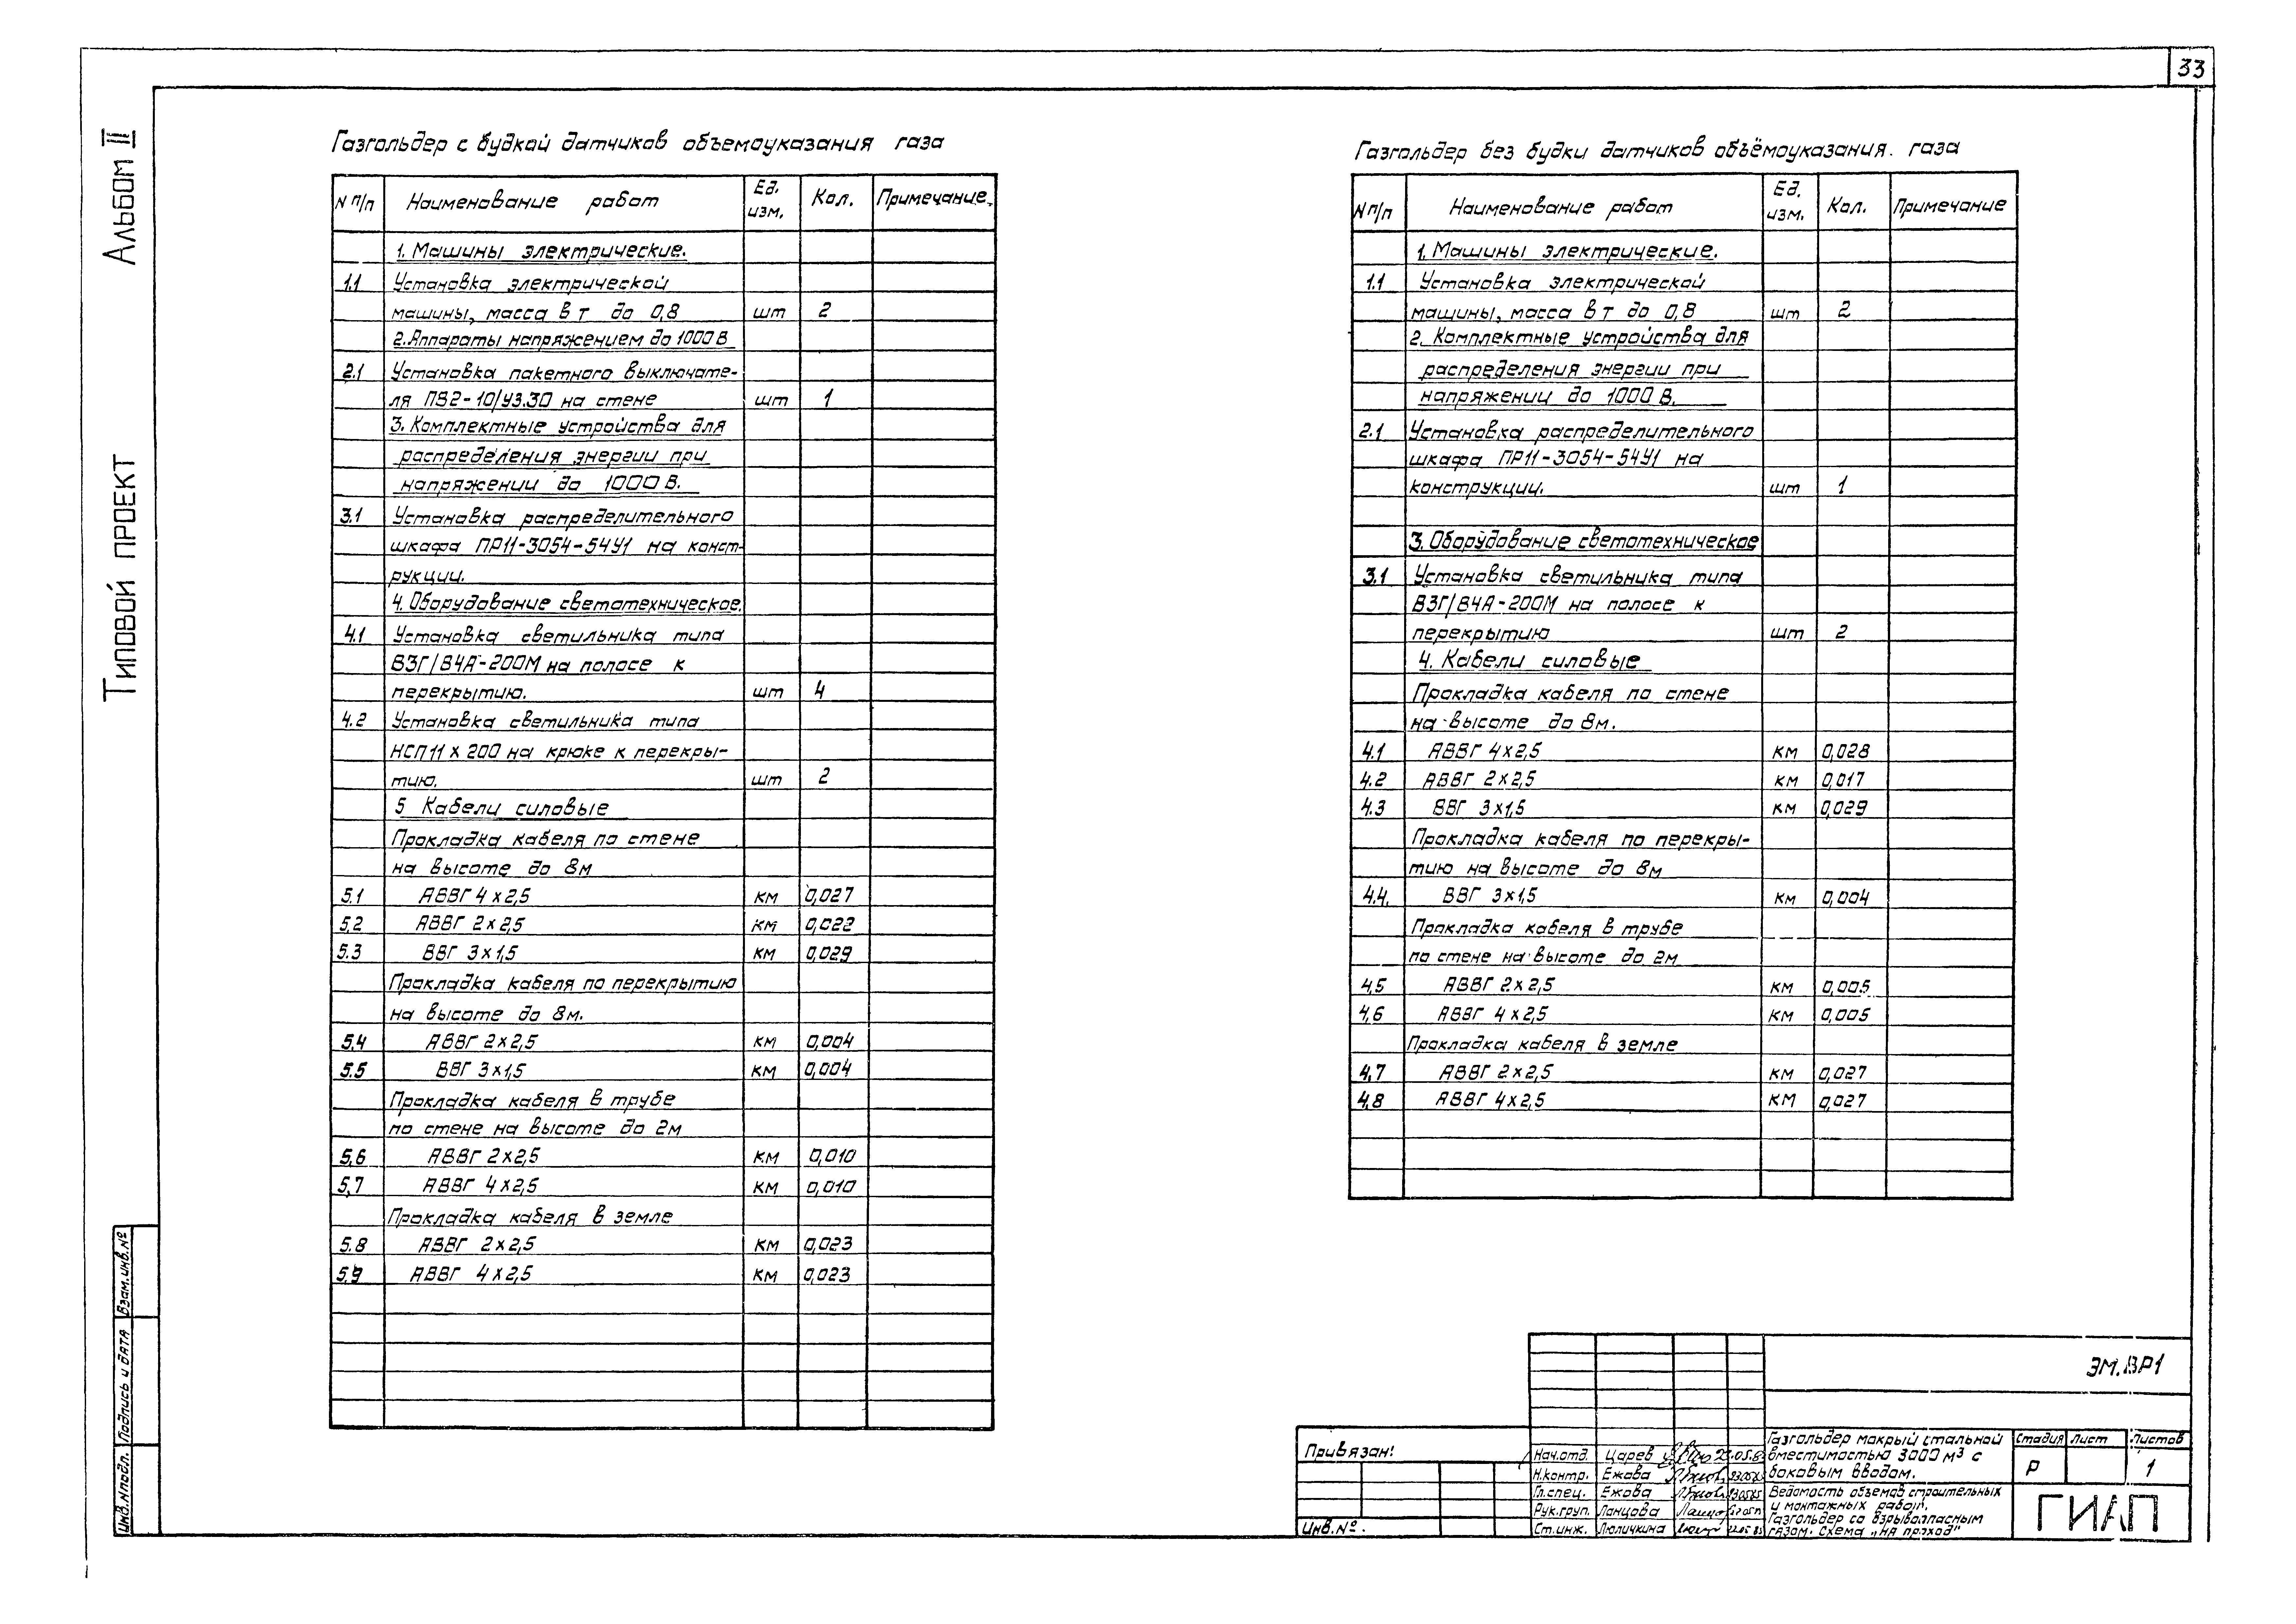 33
Альбом II
Типовой проект
Газгольдер с будкой датчиков объемоуказания газа
N п/п Наименование работ Ед. изм. Кол. Примечание
1. Машины электрические.
1.1 Установка электрической
машины, масса в т до 0,8 шт 2
2. Аппараты напряжением до 1000 В
2.1 Установка пакетного выключате-
ля ПВ2-10/У3.30 на стене шт 1
3. Комплектные устройства для
распределения энергии при
напряжении до 1000 В.
3.1 Установка распределительного
шкафа ПР11-3054-54У1 на конст-
рукции.
4. Оборудование светотехническое.
4.1 Установка светильника типа
ВЗГ/В4А-200М на полосе к
перекрытию. шт 4
4.2 Установка светильника типа
НСП11х200 на крюке к перекры-
тию. шт 2
5 Кабели силовые
Прокладка кабеля по стене
на высоте до 8м
5.1 АВВГ 4х2,5 км 0,027
5.2 АВВГ 2х2,5 км 0,022
5.3 ВВГ 3х1,5 км 0,029
Прокладка кабеля по перекрытию
на высоте до 8м.
5.4 АВВГ 2х2,5 км 0,004
5.5 ВВГ 3х1,5 км 0,004
Прокладка кабеля в трубе
по стене на высоте до 2м
5.6 АВВГ 2х2,5 км 0,010
5.7 АВВГ 4х2,5 км 0,010
Прокладка кабеля в земле
5.8 АВВГ 2х2,5 км 0,023
5.9 АВВГ 4х2,5 км 0,023
Газгольдер без будки датчиков объёмоуказания. газа
N п/п Наименование работ Ед. изм. Кол. Примечание
1. Машины электрические.
1.1 Установка электрической
машины, масса в т до 0,8 шт 2
2. Комплектные устройства для
распределения энергии при
напряжении до 1000 В.
2.1 Установка распределительного
шкафа ПР11-3054-54У1 на
конструкции. шт 1
3. Оборудование светотехническое
3.1 Установка светильника типа
ВЗГ/В4А-200М на полосе к
перекрытию шт 2
4. Кабели силовые
Прокладка кабеля по стене
на высоте до 8м.
4.1 АВВГ 4х2,5 км 0,028
4.2 АВВГ 2х2,5 км 0,017
4.3 ВВГ 3х1,5 км 0,029
Прокладка кабеля по перекры-
тию на высоте до 8м
4.4. ВВГ 3х1,5 км 0,004
Прокладка кабеля в трубе
по стене на высоте до 2м
4.5 АВВГ 2х2,5 км 0,005
4.6 АВВГ 4х2,5 км 0,005
Прокладка кабеля в земле
4.7 АВВГ 2х2,5 км 0,027
4.8 АВВГ 4х2,5 км 0,027
Взам. инв. №
Подпись и дата
Инв. N подл.
Привязан:
Инв. №.
ЭМ.ВР1
Нач.отд. Царев
Н.контр. Ежова
Гл.спец. Ежова
Рук.груп. Ланцова
Ст.инж. Люличкина
Газгольдер мокрый стальной
вместимостью 3000 м³ с
боковым вводом.
Ведомость объемов строительных
и монтажных работ.
Газгольдер со взрывоопасным
газом. Схема „на проход"
Стадия Лист Листов
Р 1
ГИАП